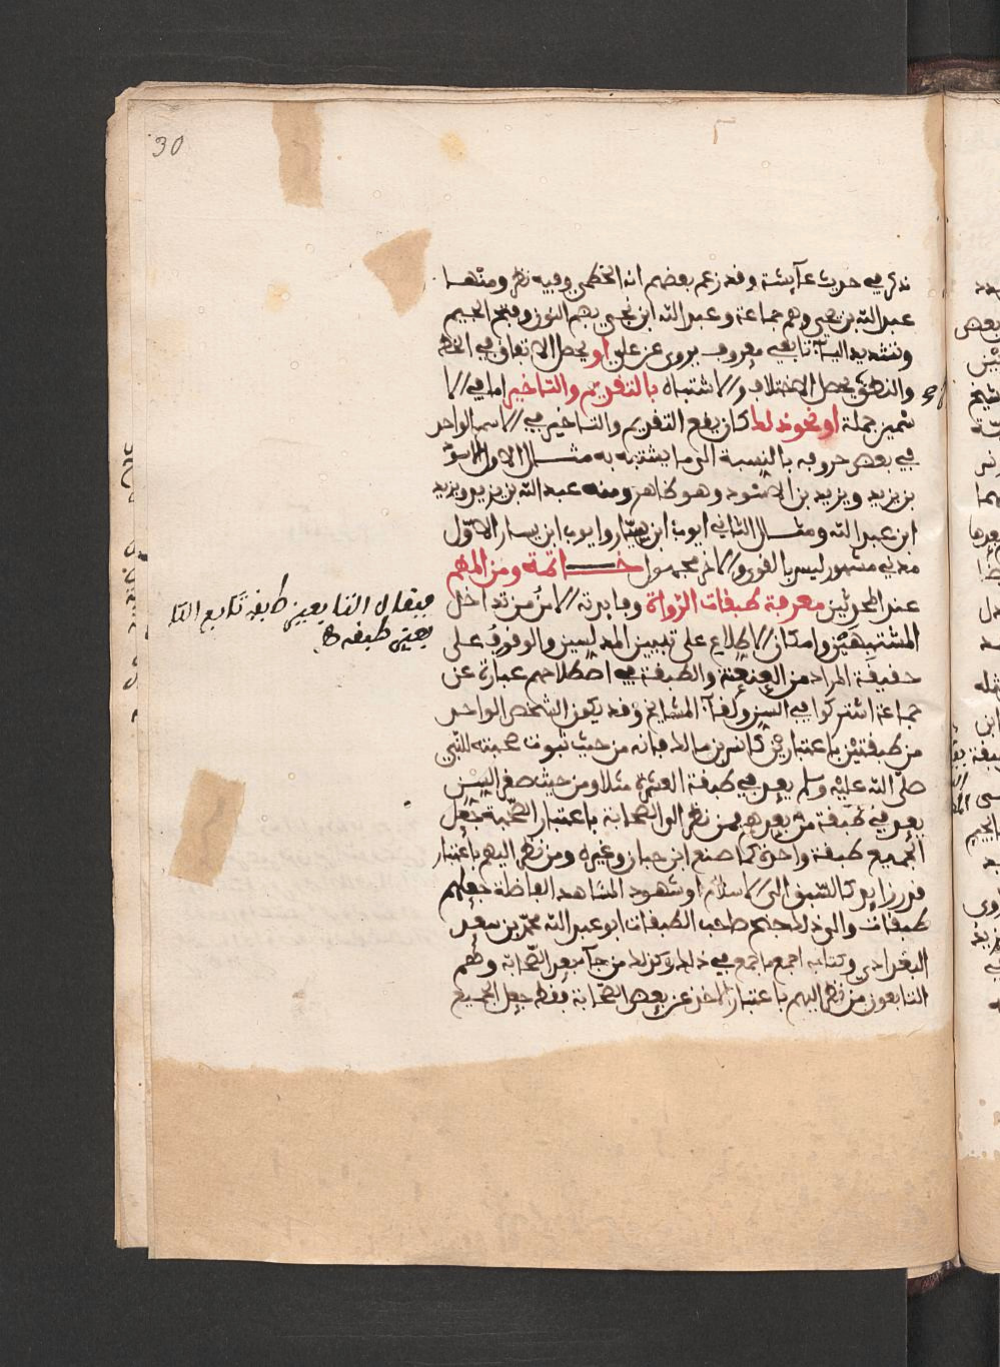 30
ذكر في حديث عآيشة وقد زعم بعضهم انه الخطمي وفيه نظر ومنها
عبد الله بن يحيى وهم جماعة وعبد الله ابن نجي بضم النون وفتح الجيم
وتشديد اليآء تابعي معروف يروى عن علي او يحصل الاتفاق في الخط
والنطق يحصل الاختلاف والاشتباه بالتقديم والتاخير اما في الا
سمين جملة او نحو ذلك كان يقع التقديم والتاخير في الاسم الواحد
في بعض حروفه بالنسبة الى ما يشتبه به مثال الاول الاسود
بن يزيد ويزيد بن الاسود وهو ظاهر ومنه عبد الله بن يزيد ويزيد
ابن عبد الله ومثال الثاني ايوب ابن سيار وايوب ابن يسار الاول
مدني مشهور ليس بالقوي والاخر مجهول خاتمة ومن المهم
عند المحدثين معرفة طبقات الرواة وفايدته الامن من تداخل
المشتبهين وامكان الاطلاع على تبيين المدلسين والوقوف على
حقيقة المراد من العنعنة والطبقة في اصطلاحهم عبارة عن
جماعة اشتركوا في السن ولقآء المشايخ وقد يكون الشخص الواحد
من طبقتين باعتبارين كانس بن مالك فانه من حيث ثبوت صحبته للنبي
صلى الله عليه وسلم يعد في طبقة العشرة مثلا ومن حيث صغر السن
يعد في طبقة من بعدهم فمن نظر الى الصحابة باعتبار الصحبة جعل
الجميع طبقة واحدة كما صنع ابن حبان وغيره ومن نظر اليهم باعتبار
قدر زايد كالسبق الى الاسلام او شهود المشاهد الفاضلة جعلهم
طبقات والى ذلك جنح صاحب الطبقات ابو عبد الله محمد بن سعد
البغدادي وكتابه اجمع ما جمع في ذلك وكذلك من جآء بعد الصحابة وهم
التابعون من نظر اليهم باعتبار الاخذ عن بعض الصحابة فقط جعل الجميع
فيقال التابعين طبقة تابع التا
بعين طبقة